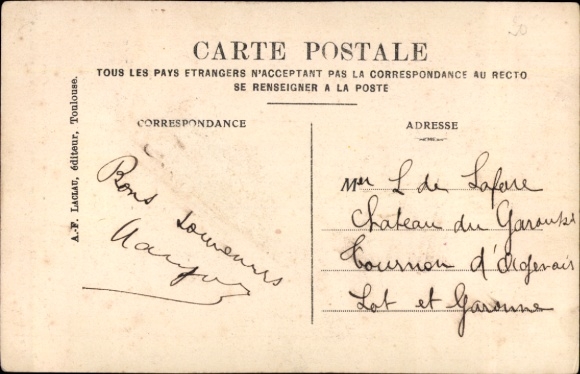 50
CARTE POSTALE
TOUS LES PAYS ETRANGERS N'ACCEPTENT PAS LA CORRESPONDANCE AU RECTO
SE RENSEIGNER A LA POSTE
A.-F. LACLAU, éditeur, Toulouse.
CORRESPONDANCE
Bons souvenirs
ADRESSE
Mer L de Lafare
Chateau du
Tournon d'Agenais
Lot et Garonne